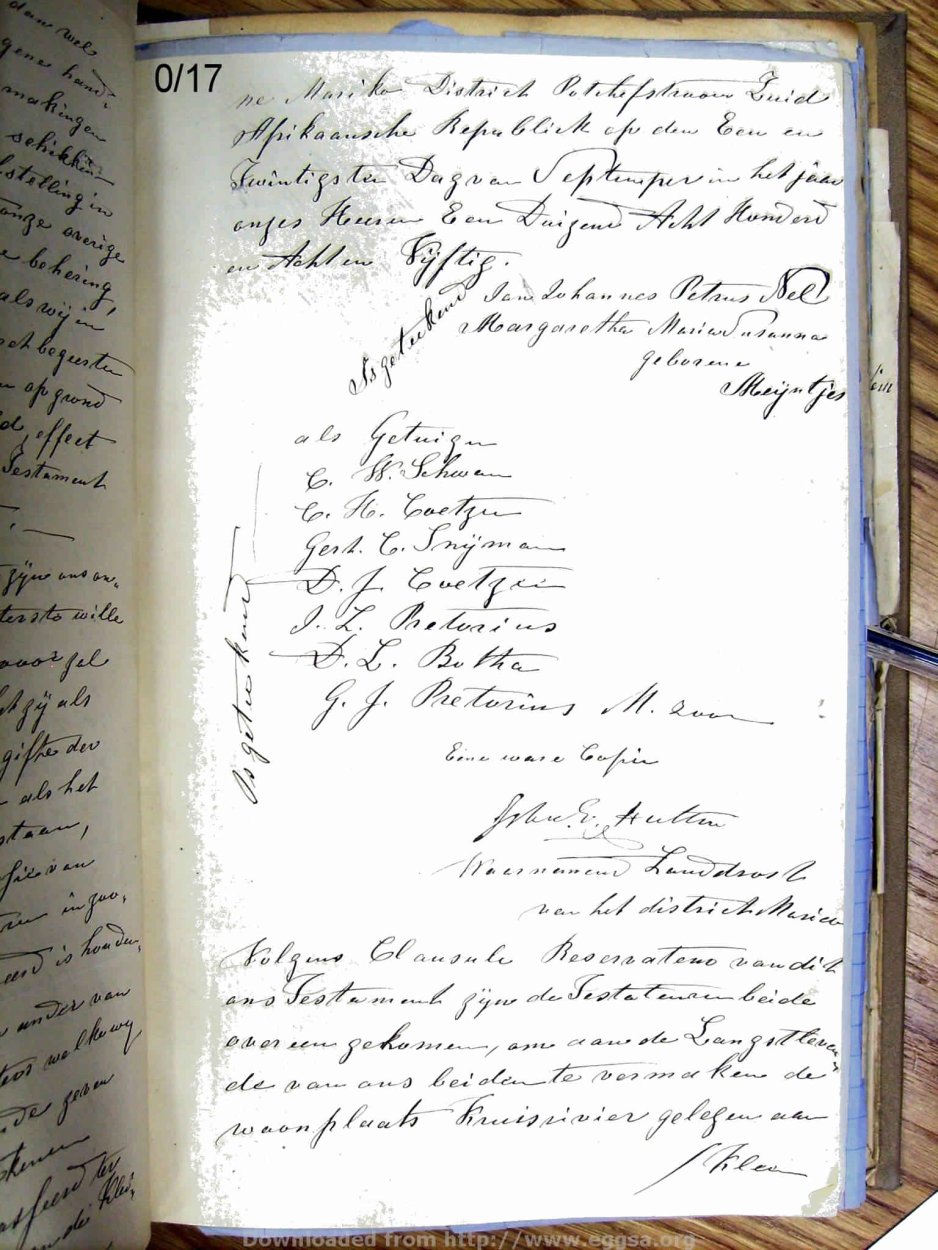 0/17
ne Mariko District Potchefstroom Zuid
Afrikaansche Republiek op den Een en
Twintigsten Dag van Septemper in het jaar
onzes Heeren Een Duizend Acht Honderd
en Acht en Vijftig.
Jan Johannes Petrus Nel
Margaretha Maria Susanna
geborene
Meijntjes
Is geteekend
als Getuigen
C. W. Schwan
C. H. Coetzee
Gert. C. Snijman
D. J. Coetzee
J. L. Pretorius
D. L. Botha
G. J. Pretorius M. zoon
Is geteekend
Eene ware Copie
John E. Hutten
Waarnemend Landdrost
van het district Marico
Volgens Clausule Reservateno van dit
ons Testament zijn de Testateuren beide
overeen gekomen, om aan de Langstleven
de van ons beiden te vermaken de
woonplaats Kruisrivier gelegen aan
Klein
den wel
gene hand
makingen
schikkin
stelling in
onze overige
behering,
als wij in
begeerten
op grond
effect
Testament
zijn ons on
terste wille
voor zal
zij als
gifte der
als het
staan,
van
in zoo
is houden
ander van
welke wij
geven
de Klei
Downloaded from http://www.eggsa.org